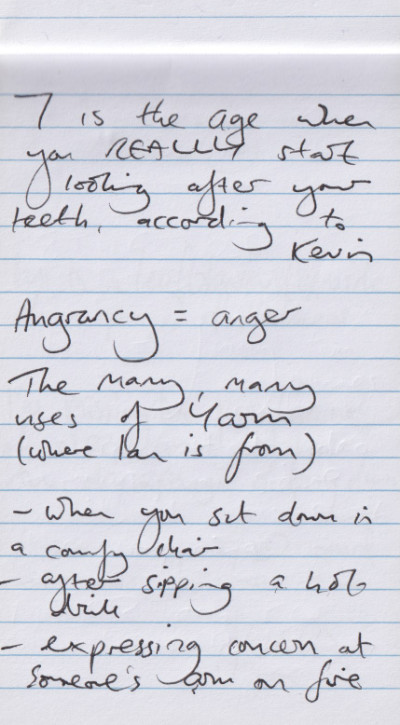 7 is the age when
you REALLLY start
looking after your
teeth, according to
Kevin
Angrancy = anger
The many, many
uses of Yarm
(where Ian is from)
- when you sit down in
a comfy chair
- after sipping a hot
drink
- expressing concern at
someone's arm on fire